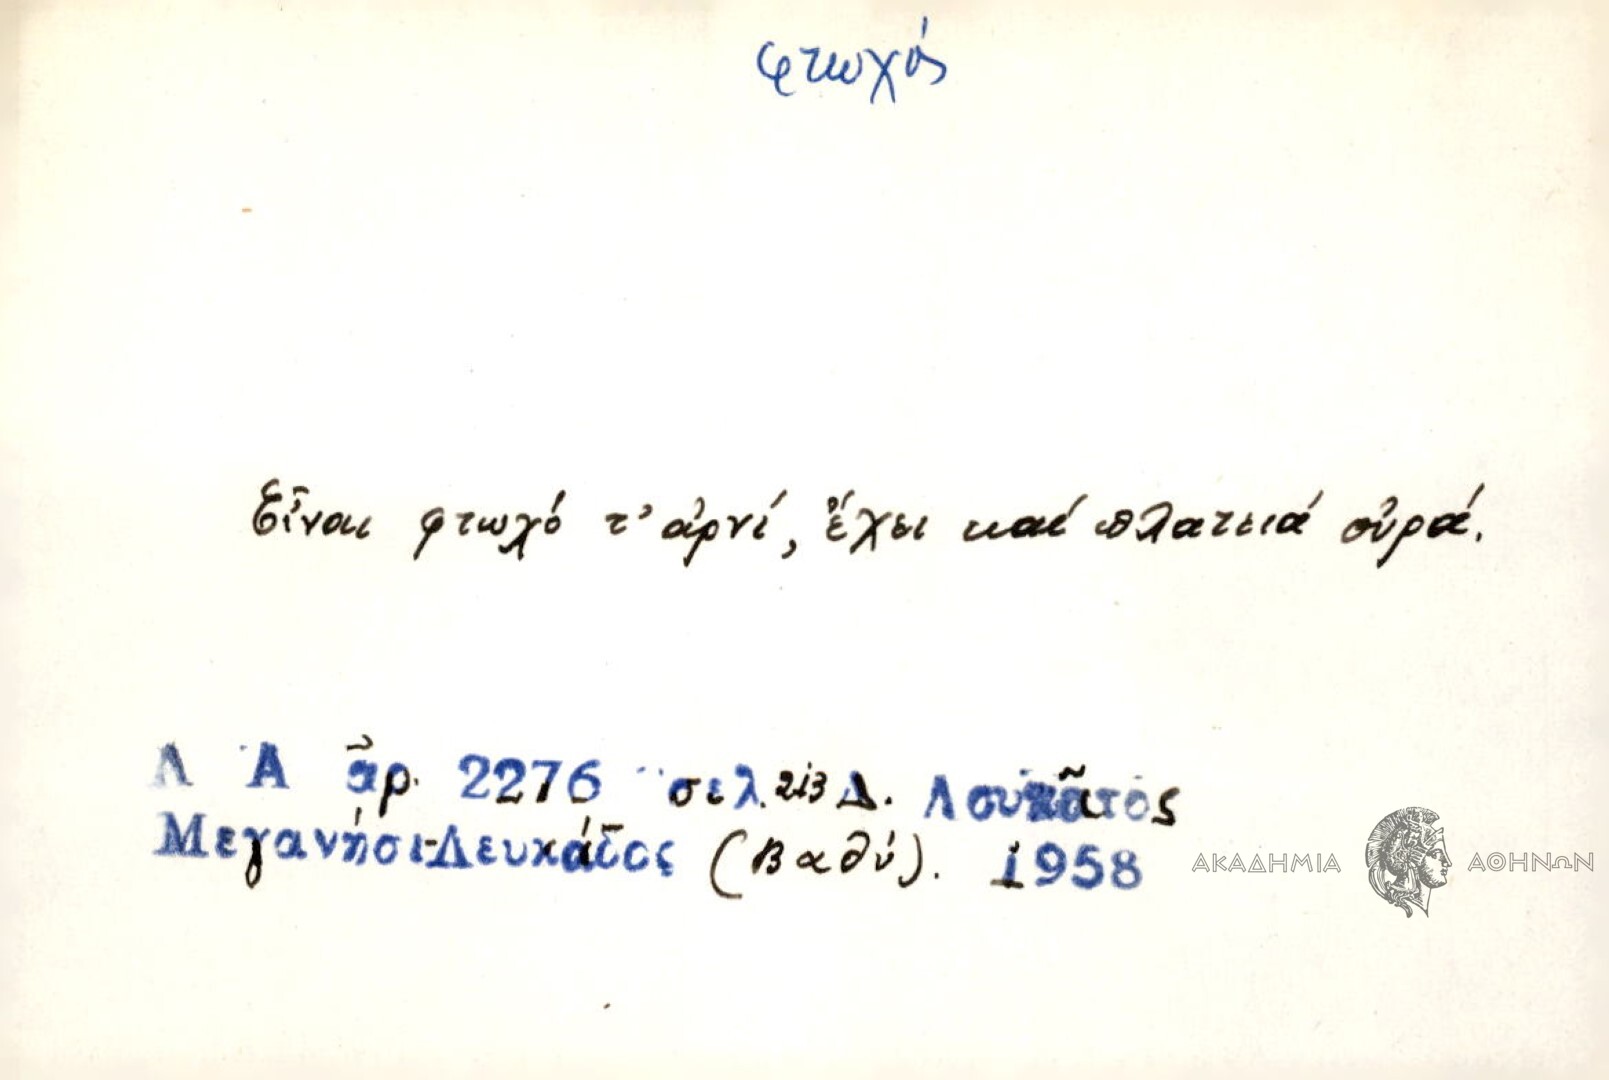 φτωχός
Εἶναι φτωχό τ' ἀρνί, ἔχει καί πλατειά οὐρά.
Λ Α ἀρ. 2276 σελ. 213 Δ. Λουκᾶτος
Μεγανήσι-Λευκάδος (Βαθύ). 1958
ΑΚΑΔΗΜΙΑ ΑΘΗΝΩΝ